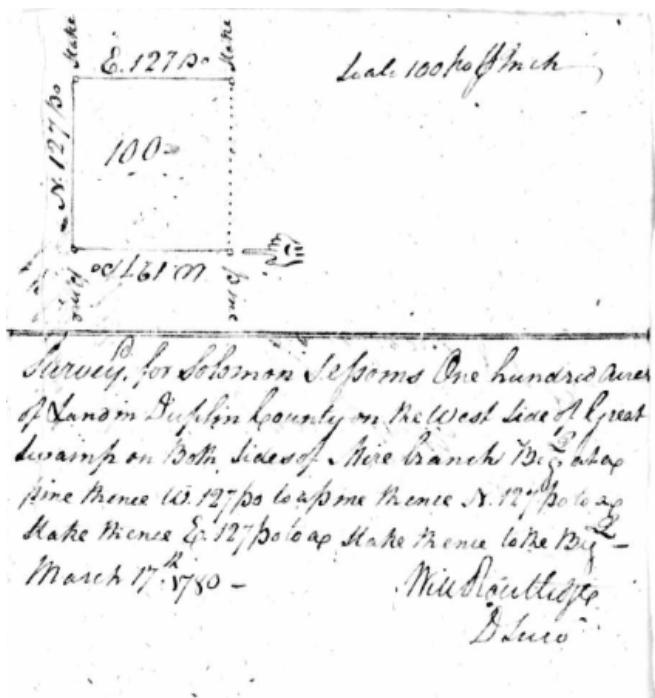 Stake
Stake
E. 127 po
Scale 100 po ⅌ Inch
N. 127 po
100
W 127 Po
pine
pine
Survey'd for Solomon Sessoms One hundred acres
of Land in Duplin County on the West Side of Great
Swamp on Both Sides of Mire branch Beg at a
pine thence W. 127 po to a pine thence N. 127 po to a
Stake thence E. 127 po to a Stake thence to the Beg
March 17th 1780 -
Will Routledge
D Surv